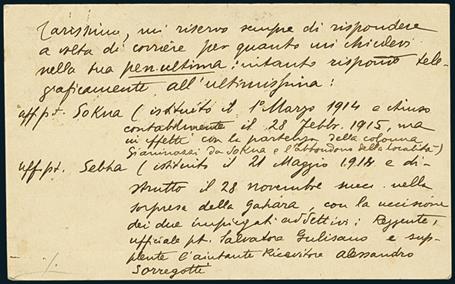 Carissimo, mi riservo sempre di rispondere
a volta di corriere per quanto mi chiedevi
nella tua penultima: intanto rispondo tele-
graficamente all'ultimissima:
uff. pt. Sokna (istituito il 1° Marzo 1914 e chiuso
contabilmente il 28 febbr. 1915, ma
in effetti con la partenza della colonna
Gianninazzi da Sokna e l'abbandono della località)
uff. pt. Sebha (istituito il 21 Maggio 1914 e di-
strutto il 28 novembre succ. nella
sorpresa della Gahára, con la uccisione
dei due impiegati addettivi: Reggente,
ufficiale pt. Salvatore Gulisano e sup-
plente l'aiutante Ricevitore Alessandro
Sorregotte